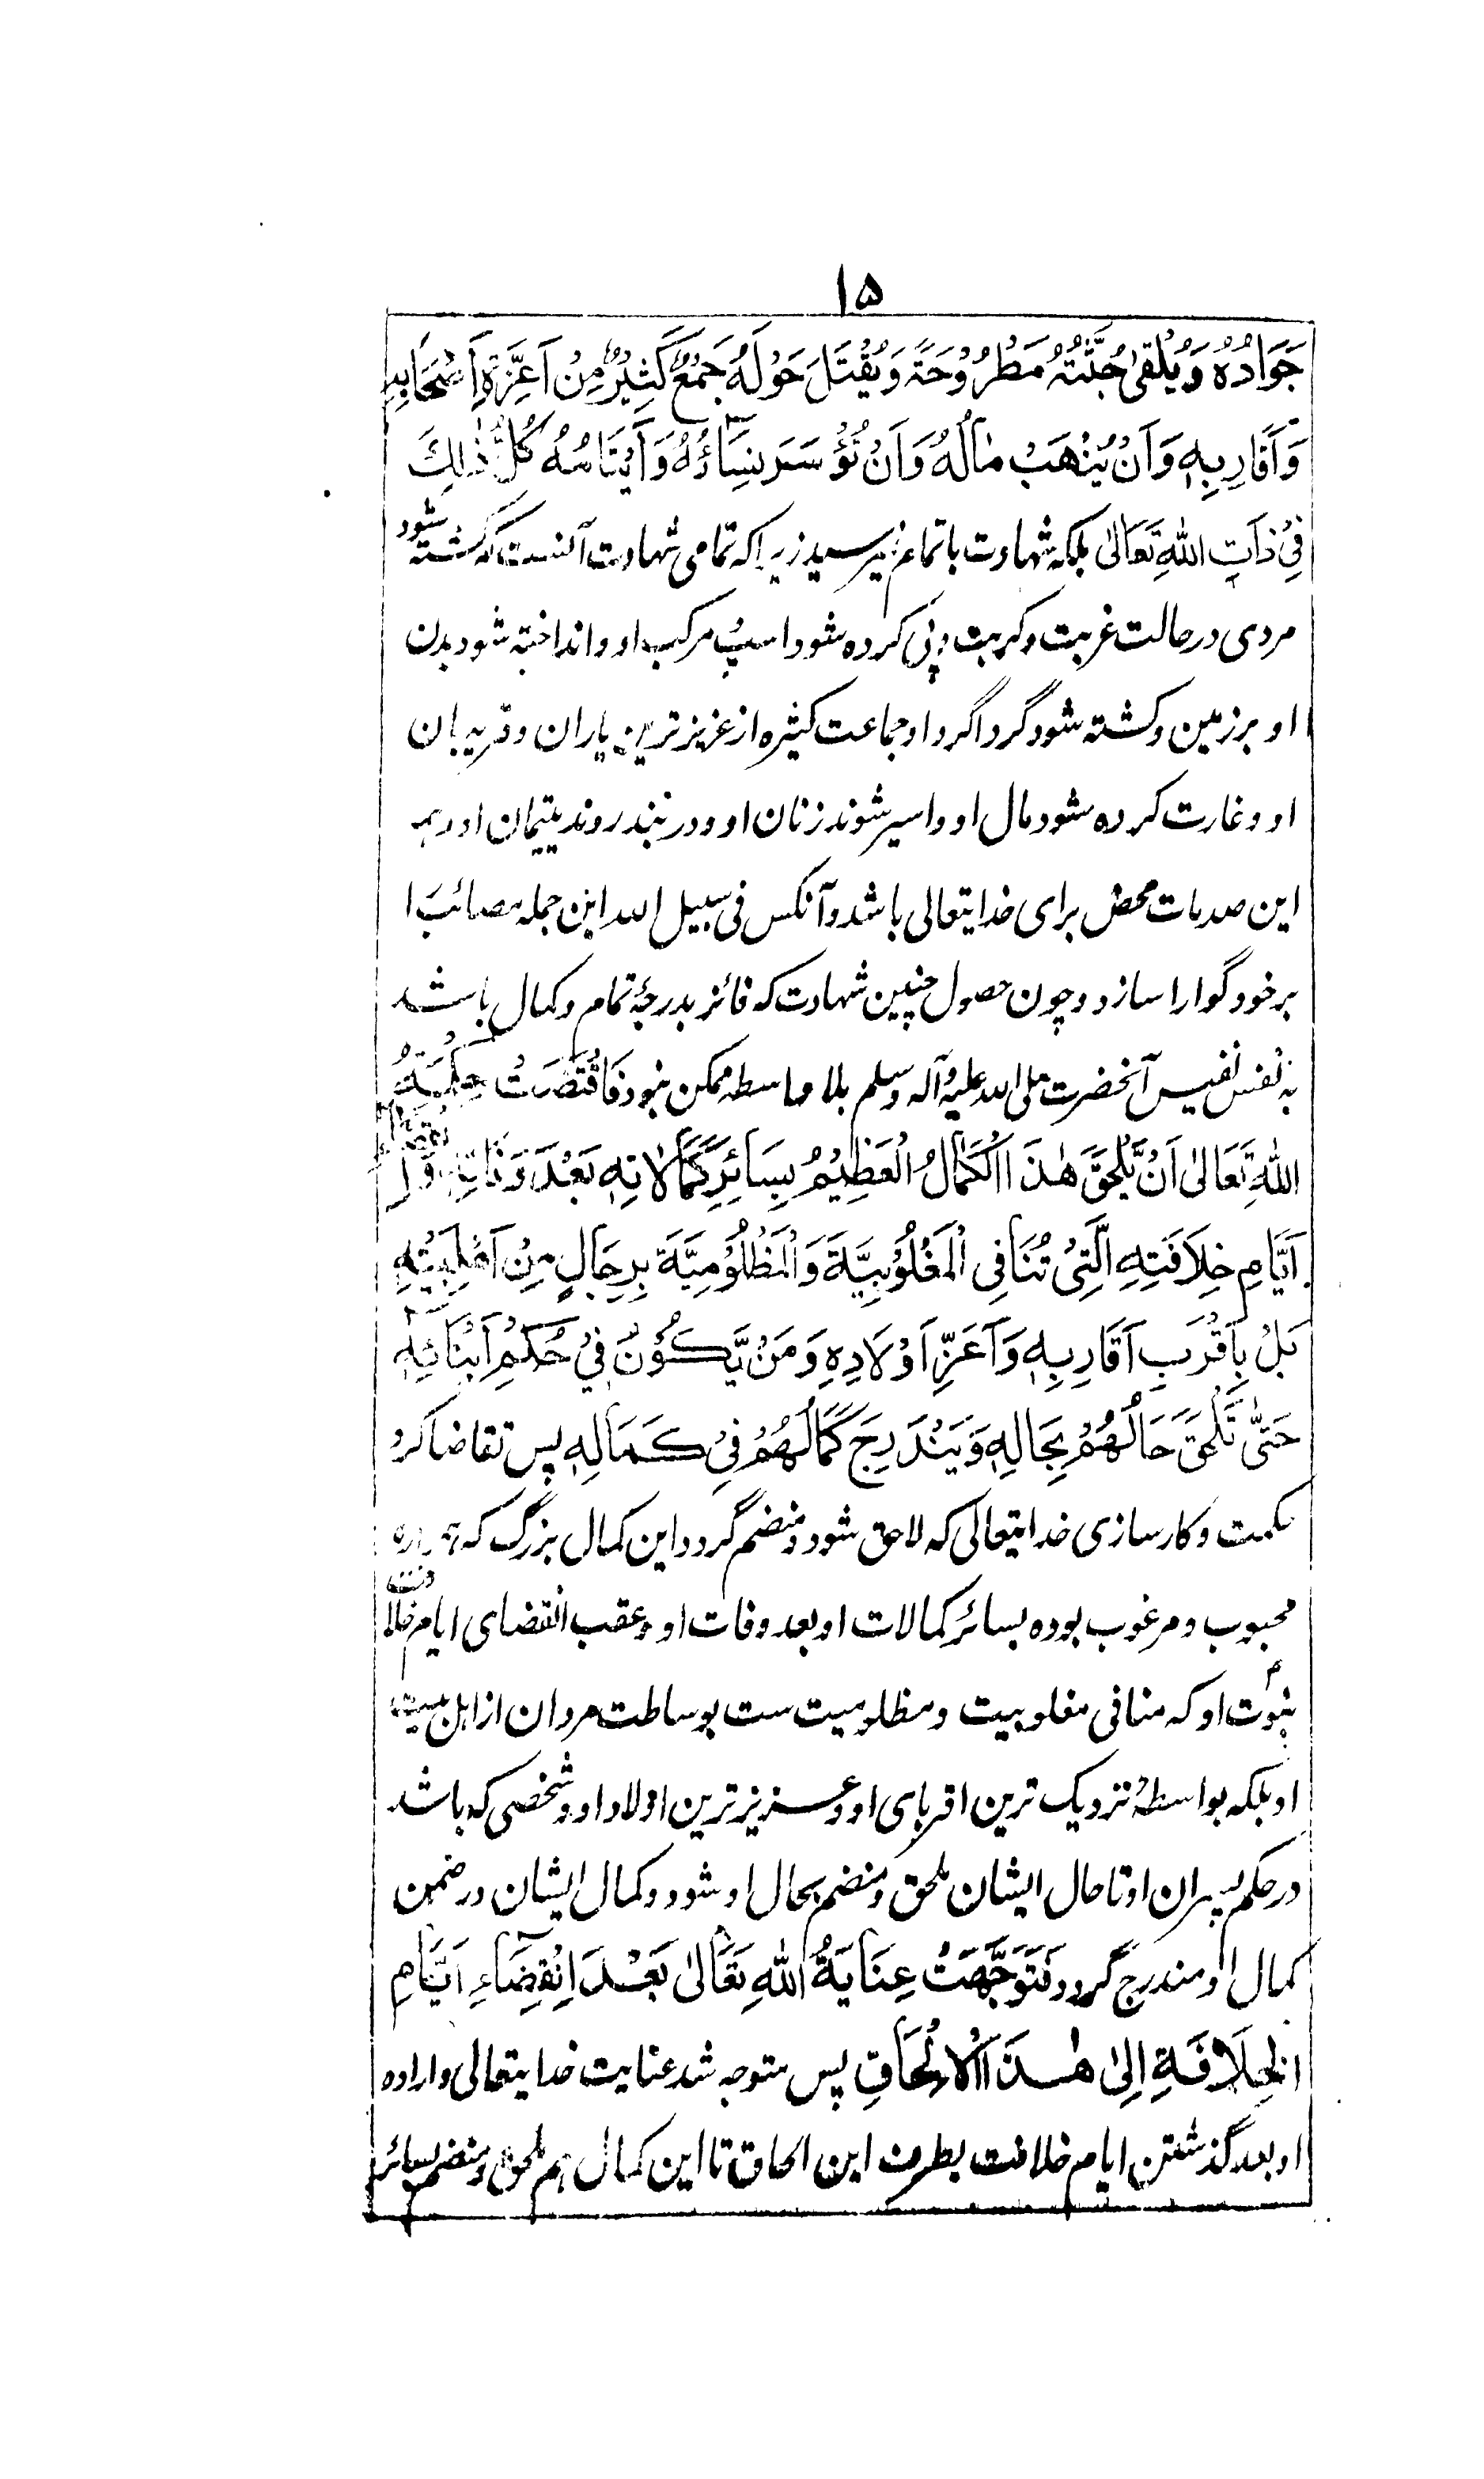 ۱۵
جَوَادُهُ وَيُلْقىٰ جُثَّتُهُ مَطْرُوْحَةً وَيُقْتَلَ حَوْلَهُ جَمْعٌ كَثِيْرٌ مِنْ اَعِزَّةِ اَصْحَابِهِ
وَاَقَارِبِهٖ وَاَنْ يُنْهَبَ مٰالُهُ وَاَنْ تُؤْسَرَ نِسَاؤُهُ وَاَيْتَامُهُ كُلُّ ذٰلِكَ
فِيْ ذَاتِ اللهِ تَعَالىٰ بلکه شهادت باتمام نمیرسید زیراکه تمامی شهادت آنست که کشته شود
مردی در حالت غربت و کربت و پی کرده شود اسپ مرکب او و انداخته شود بدن
او بر زمین و کشته شود گرداگرد او جماعت کثیره از عزیز ترین یاران و قریبان
او و غارت کرده شود مال او و اسیر شوند زنان او و در بند روند یتیمان او و همه
این صدمات محض برای خدایتعالی باشد و آنکس فی سبیل الله این جمله مصائب را
بر خود گوارا سازد و چون حصول چنین شهادت که فائز بدرجۂ تمام و کمال باشد
به نفس نفیس آنحضرت صلی الله علیه و آله وسلم بلا واسطه ممکن نبود فَاقْتَضَتْ حِكْمَةُ
اللهِ تَعَالىٰ اَنْ يَّلْحَقَ هٰذَا الْكَمَالُ الْعَظِيْمُ بِسَائِرِ كَمَالَاتِهٖ بَعْدَ وَفَاتِهٖ وَانْقِضَاءِ
اَيَّامِ خِلَافَتِهِ الَّتِيْ تُنَافِى الْمَغْلُوْبِيَّةَ وَالْمَظْلُوْمِيَّةَ بِرِجَالٍ مِنْ اَهْلِ بَيْتِهٖ
بَلْ بِاَقْرَبِ اَقَارِبِهٖ وَاَعَزِّ اَوْلَادِهٖ وَمَنْ يَّكُوْنُ فِيْ حُكْمِ اَبْنَائِهٖ
حَتّٰى تَلْحَقَ حَالُهُمْ بِحَالِهٖ وَيَنْدَرِجَ كَمَالُهُمْ فِيْ كَمَالِهٖ پس تقاضا کرد
حکمت و کارسازی خدایتعالی که لاحق شود و منضم گردد این کمال بزرگ که همواره
محبوب و مرغوب بوده بسائر کمالات او بعد وفات او و عقب انقضای ایام خلافت
نبوت او که منافی مغلوبیت و مظلومیت ست بوساطت مردان از اهل بیت
او بلکه بواسطۂ نزدیک ترین اقربای او و عزیز ترین اولاد او و شخصی که باشد
در حکم پسران او تا حال ایشان ملحق و منضم بحال او شود و کمال ایشان در ضمن
کمال او مندرج گردد فَتَوَجَّهَتْ عِنَايَةُ اللهِ تَعَالىٰ بَعْدَ اِنْقِضَاءِ اَيَّامِ
الْخِلَافَةِ اِلىٰ هٰذَا الْاِلْحَاقِ پس متوجه شد عنایت خدایتعالی و اراده
او بعد گذشتن ایام خلافت بطرف این الحاق تا این کمال هم ملحق و منضم بسائر